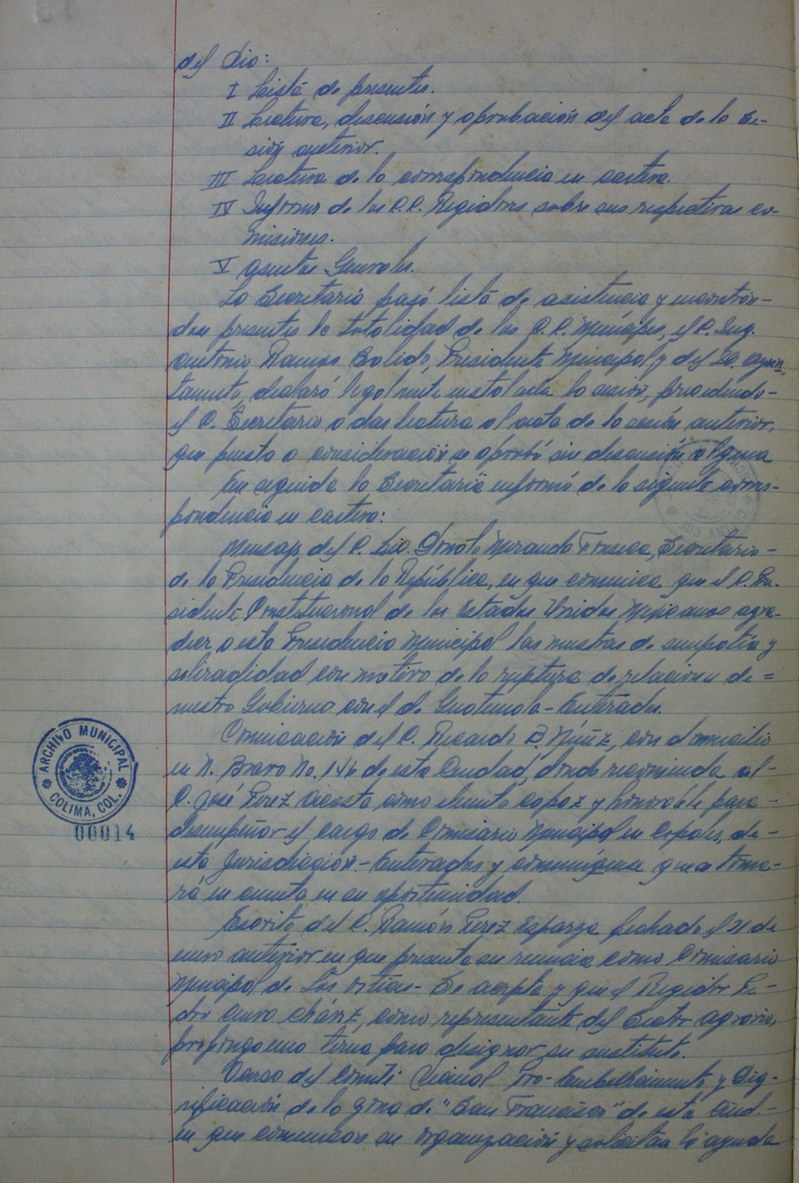 del Dia:
I Lista de presentes.
II Lectura, discusión y aprobación del acta de la se-
sión anterior.
III Lectura de la correspondencia en cartera.
IV Informes de los C.C. Regidores sobre sus respectivas co-
misiones.
V Asuntos Generales.
La Secretaria pasó lista de asistencia y encontrán-
dose presentes la totalidad de los C.C. Munícipes, el C. Ing.
Antonio Ramos Salido, Presidente Municipal y del H. Ayun-
tamiento, declaró legalmente instalada la sesión, procediendo-
el C. Secretario a dar lectura al acta de la sesión anterior,
que puesta a consideración se aprobó sin discusión alguna
En seguida la Secretaria informó de la siguiente corres-
pondencia en cartera:
Mensaje del C. Lic. Donato Miranda Fonseca, Secretario-
de la Presidencia de la República, en que comunica que el C. Pre-
sidente Constitucional de los Estados Unidos Mexicanos agra-
dece a esta Presidencia Municipal las muestras de simpatía y
solidaridad con motivo de la ruptura de relaciones de=
nuestro Gobierno con el de Guatemala.- Enterados.
Comunicación del C. Ricardo B. Núñez, con domicilio
en N. Bravo No. 146 de esta Ciudad, donde recomienda al-
C. José Perez Acosta, como elemento capaz y honorable para-
desempeñar el cargo de Comisario Municipal en Copales, de-
esta Jurisdicción.- Enterados y comuníquese que se toma-
rá en cuenta en su oportunidad.
Escrito del C. Ramón Perez Esparza fechado el 21 de
enero anterior en que presenta su renuncia como Comisario
Municipal de Los Ortices.- Se acepta y que el Regidor Pe-
dro Cuevo Chávez, como representante del Sector agrario,
proponga una terna para designar su sustituto.
Curso del Comité Vecinal Pro-Embellecimiento y Dig-
nificación de la zona de "San Francisco" de esta Ciud-
en que comunican su organización y solicitan la ayuda
ARCHIVO MUNICIPAL
COLIMA, COL.
00014